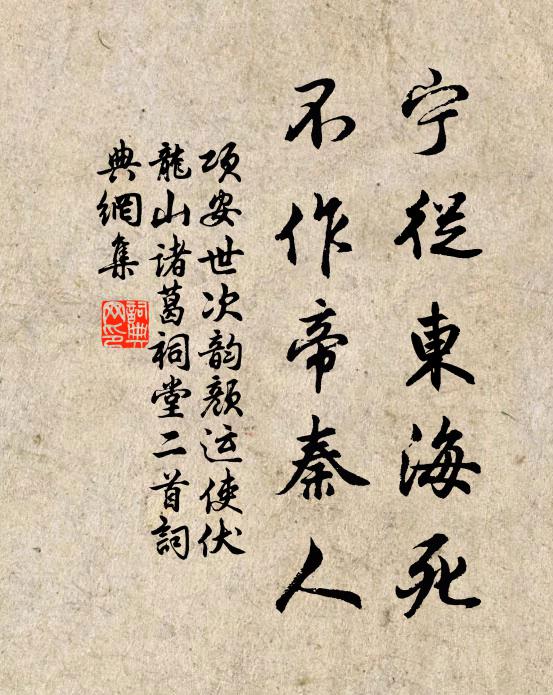 宁從東海死
不作帝秦人
项安世次韵颜运使伏
龍山诸葛祠堂二首詞
典網集
詞典
网印